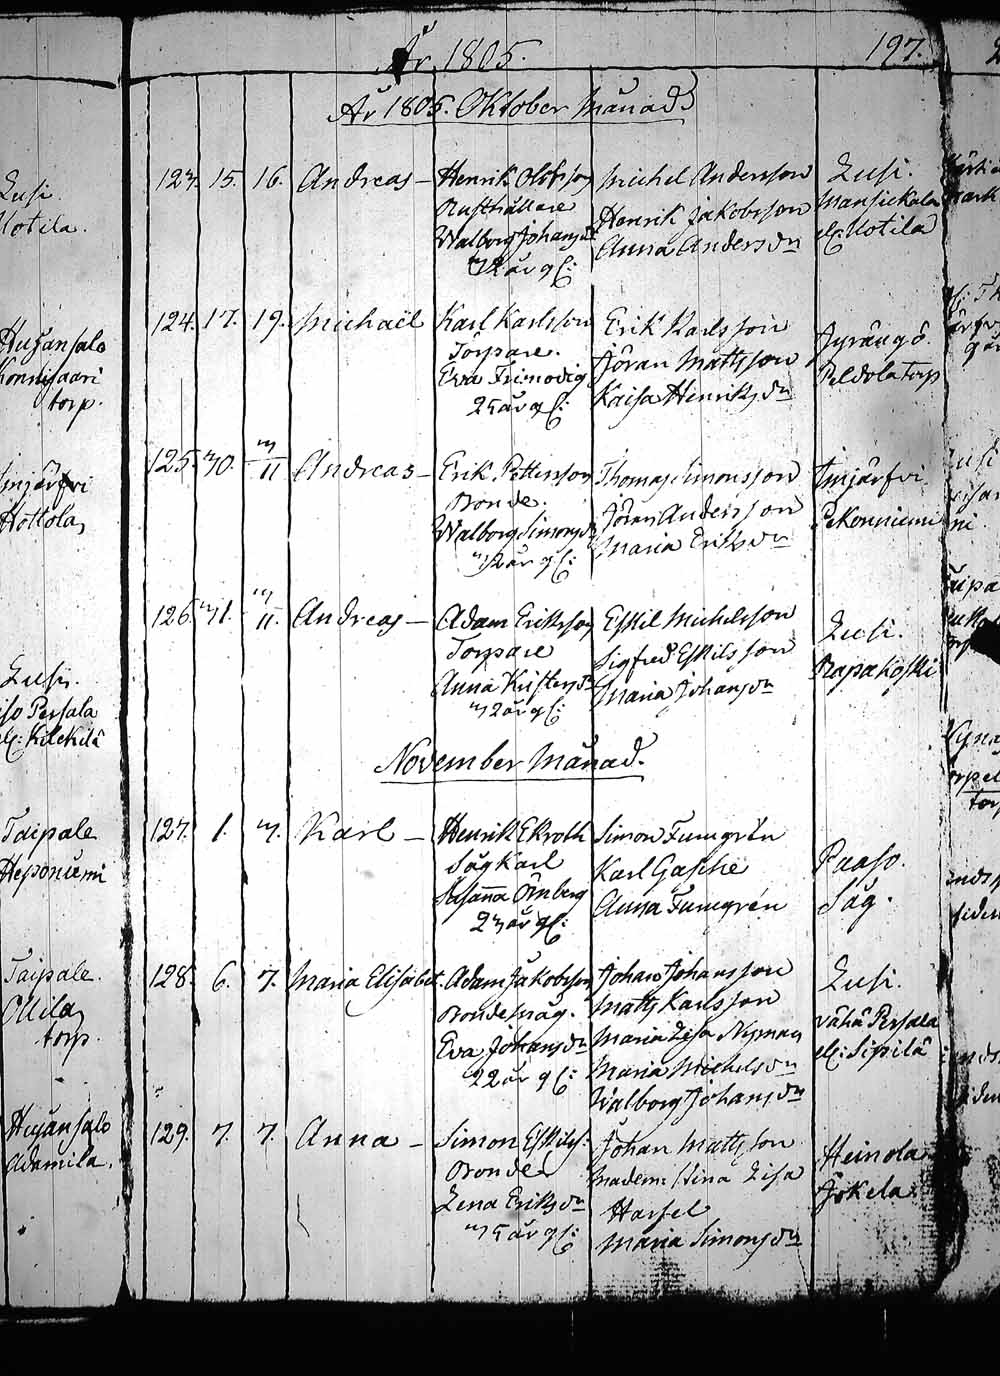 År 1805.
197.
År 1805. Oktober Månad
123. 15. 16. Andreas –
Henrik Olofsson
Rusthållare
Walborg Johansdr
32 år gl:
Michel Andersson
Henrik Jakobsson
Anna Andersdr
Lusi.
Mansickala
el: Uotila
124. 17. 19. Michaël
Karl Karlsson
Torpare.
Eva Frimodig
25 år gl:
Erik Karlsson
Jöran Mattsson
Kaisa Henriksdr
Jyrängö.
Peldola torp
125. 30. 3/11 Andreas –
Erik Pettersson
Bonde.
Walborg Simonsdr
32 år gl:
Thomas Simonsson
Jöran Andersson
Maria Eriksdr
Imjärfvi
Pekonniemi
126. 31. 3/11. Andreas –
Adam Eriksson
Torpare
Anna Kristersdr
32 år gl:
Eskil Michelsson
Sigfred Eskilsson
Maria Johansdr
Lusi.
Rapakoski
November Månad.
127. 1. 3. Karl –
Henrik Ekroth
Sågkarl
Susanna Örnberg
23 år gl:
Simon Furugrén
Karl Gasche
Anna Furugrén
Paaso.
Såg.
128. 6. 7. Maria Elisabet.
Adam Jakobsson
Bondemåg.
Eva Johansdr
22 år gl:
Johan Johansson
Matts Karlsson
Maria Lisa Nyman
Maria Michelsdr
Walborg Johansdr
Lusi.
Vähä Persala
el: Sipilä
129. 7. 7. Anna –
Simon Eskilss:
Bonde
Lena Eriksdr
35 år gl:
Johan Mattsson
Madem: Stina Lisa
Harfel
Maria Simonsdr
Heinola
Jokela
Lusi.
Uotila.
Huijansalo
Konnisaari
torp.
Imjärfvi
Hottola
Lusi.
Iso Persala
el: Kilekilä
Taipale
Heponiemi
Taipale.
Ollila
torp.
Huijansalo
Adamila.